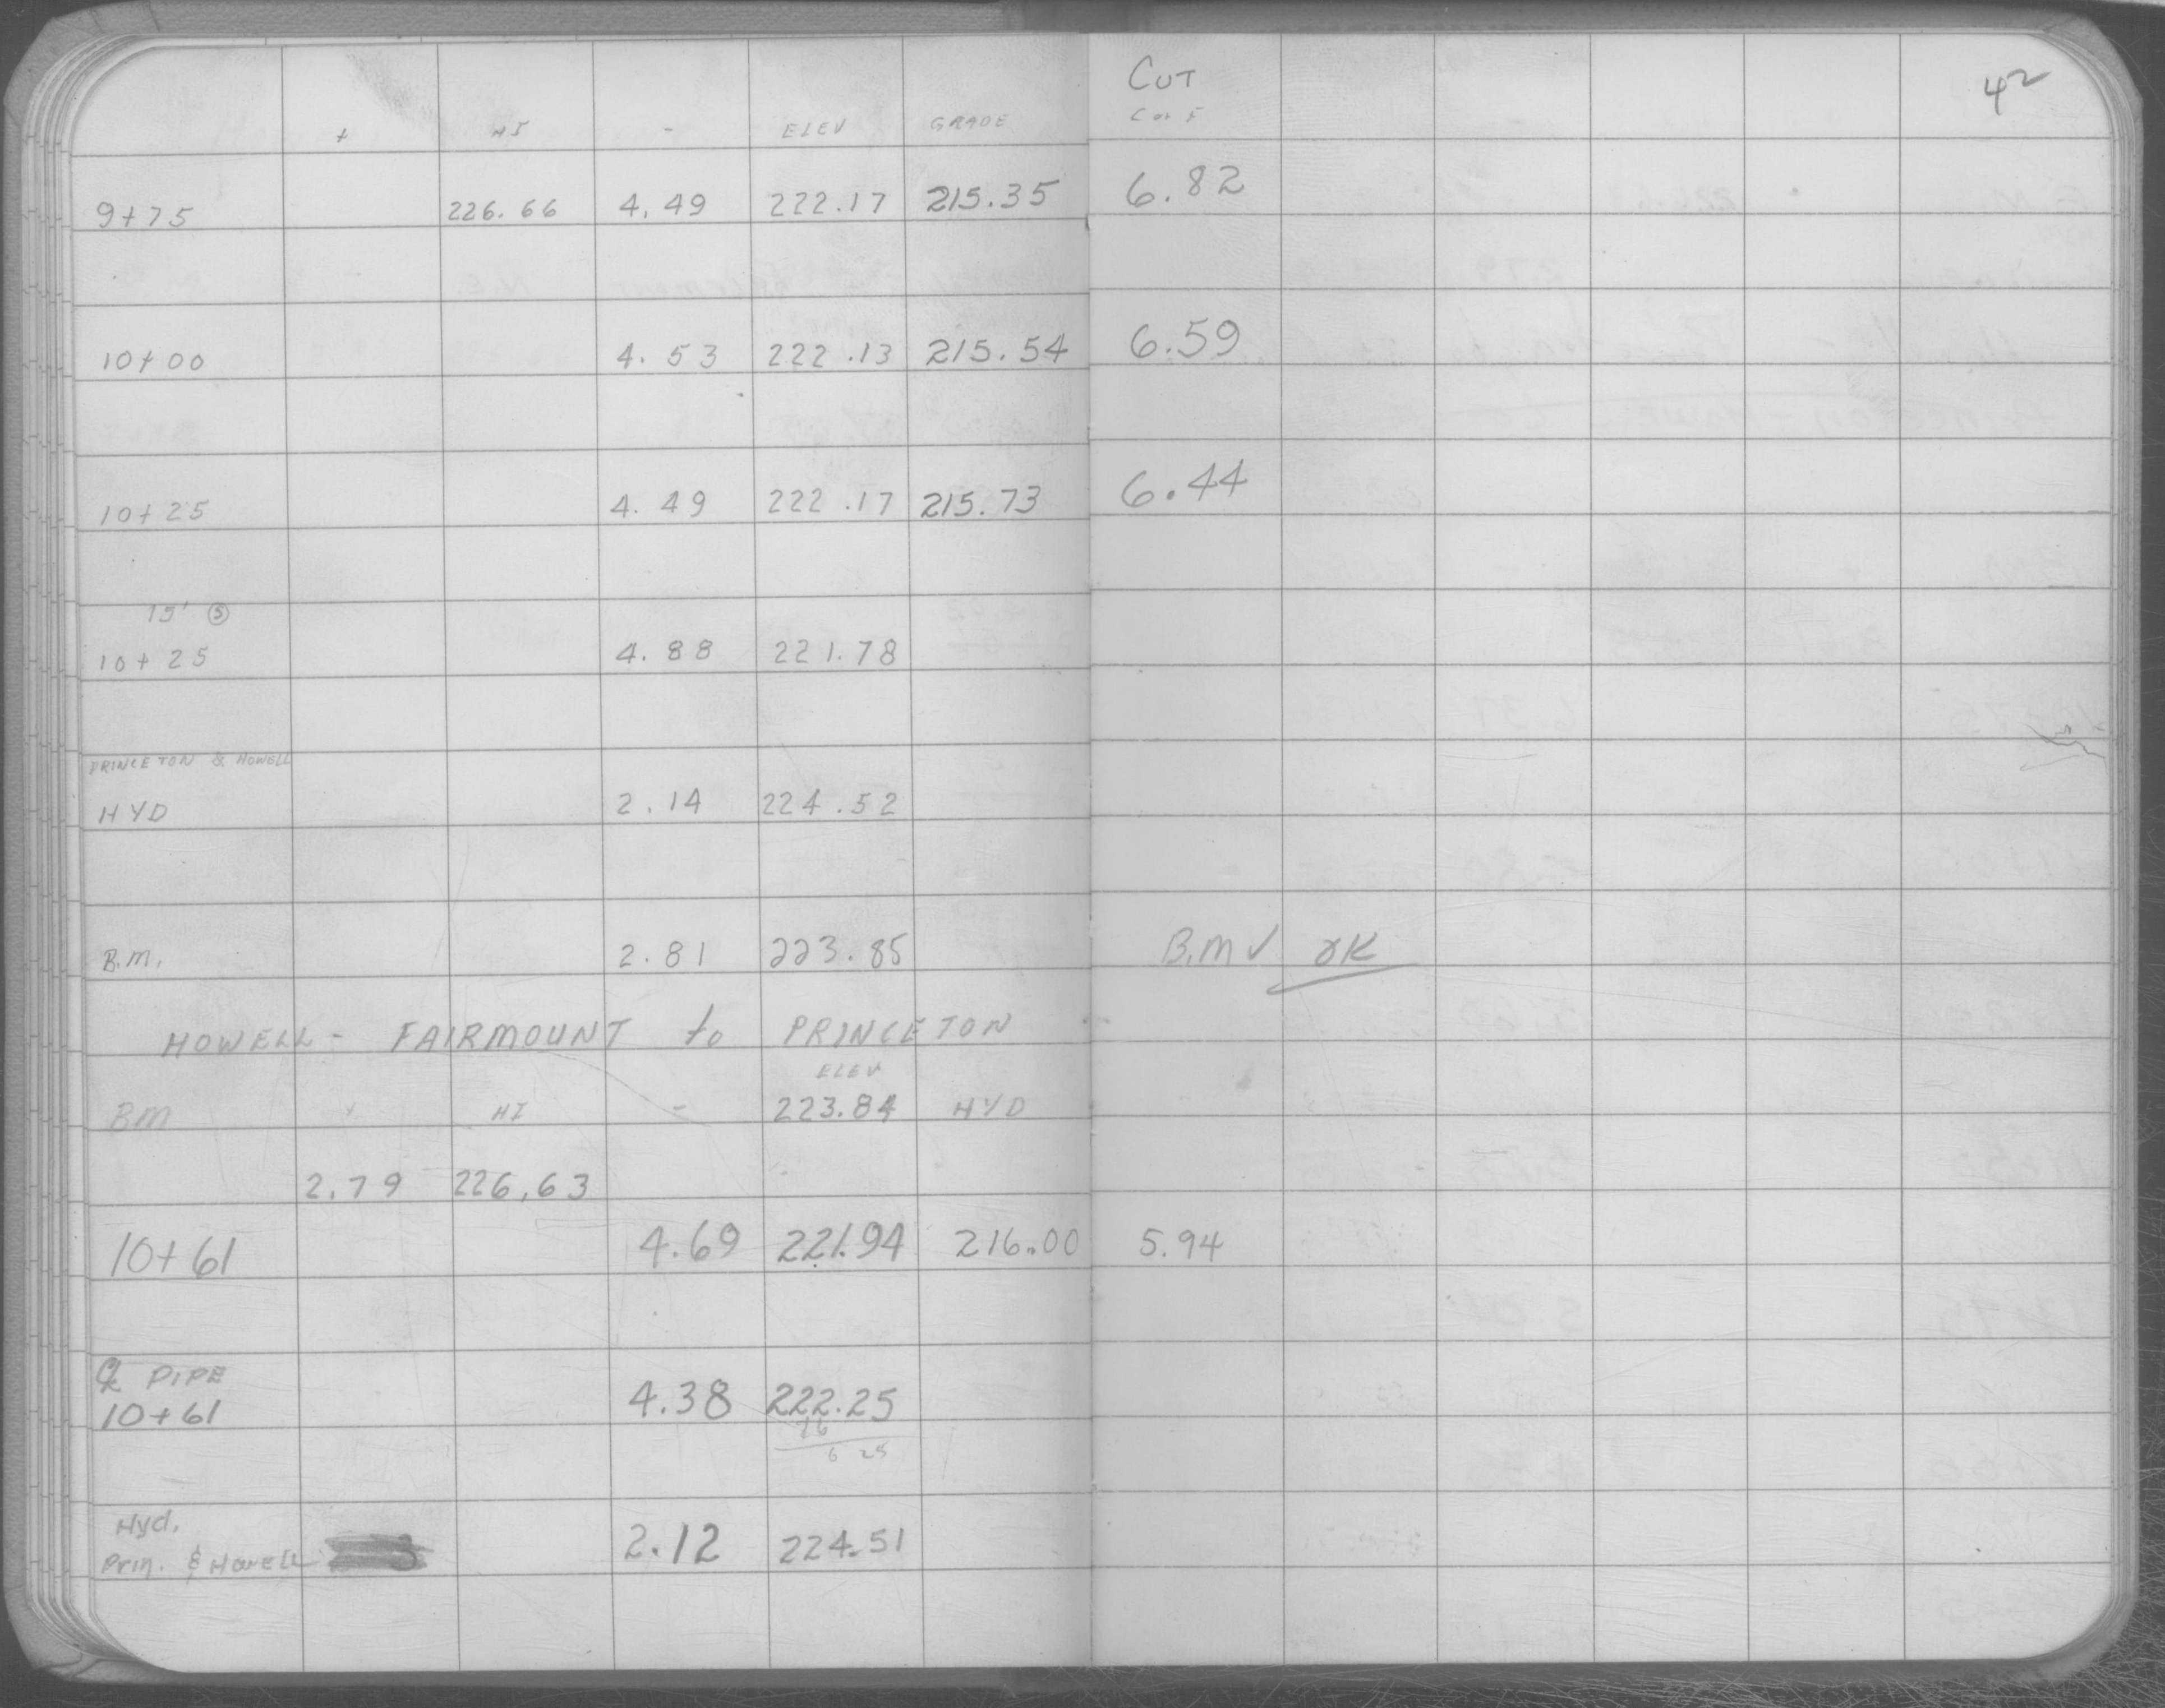 CUT 42
+ HI - ELEV GRADE C or F
9+75 226.66 4.49 222.17 215.35 6.82
10+00 4.53 222.13 215.54 6.59
10+25 4.49 222.17 215.73 6.44
15' S
10+25 4.88 221.78
PRINCETON & HOWELL
HYD 2.14 224.52
B.M. 2.81 223.85 B.M ✓ OK
HOWELL - FAIRMOUNT to PRINCETON
ELEV
BM + HI - 223.84 HYD
2.79 226.63
10+61 4.69 221.94 216.00 5.94
℄ PIPE
10+61 4.38 222.25
16
6 25
Hyd.
Prin. & Howell 2.12 224.51